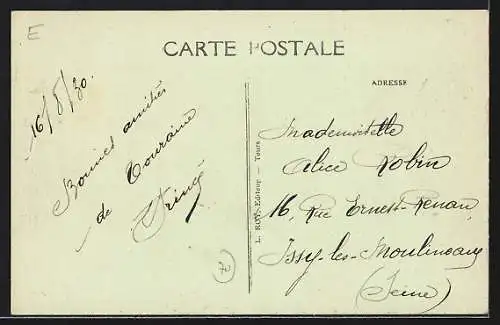 E
CARTE POSTALE
ADRESSE
16/8/30.
Bonnes amitiés
de Touraine
L. ROY, Editeur — Tours
Mademoiselle
Alice Robin
16, Rue Ernest-Renan
Issy-les-Moulineaux
(Seine)
70